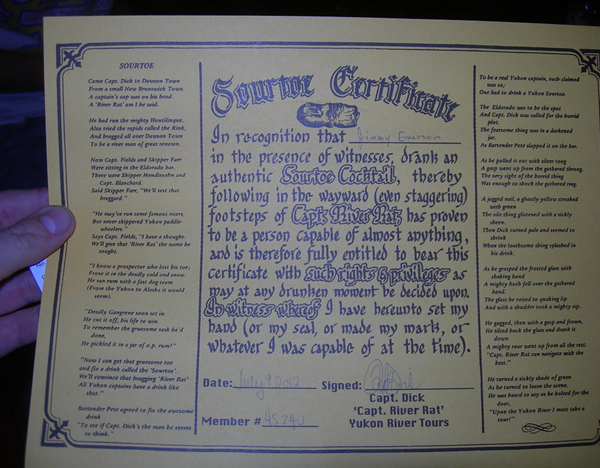 SOURTOE
Came Capt. Dick to Dawson Town
From a small New Brunswick Town.
A captain's cap was on his head.
A 'River Rat' am I he said.
He had run the mighty Hootilinqua,
Also tried the rapids called the Rink,
And bragged all over Dawson Town
To be a river man of great renown.
Now Capt. Fields and Skipper Farr
Were sitting in the Eldorado bar.
There were Skipper Mendlesohn and
Capt. Blanchard.
Said Skipper Farr, "We'll test that
braggard."
"He may've run some famous rivers,
But never shipped Yukon paddle-
wheelers."
Says Capt. Fields, "I have a thought.
We'll give that 'River Rat' the name he
sought.
"I know a prospector who lost his toe;
Froze it in the deadly cold and snow.
He ran rum with a fast dog team
(From the Yukon to Alaska it would
seem).
"Deadly Gangrene soon set in.
He cut it off, his life to win
To remember the gruesome task he'd
done,
He pickled it in a jar of o.p. rum!"
"Now I can get that gruesome toe
and fix a drink called the 'Sourtoe'.
We'll convince that bragging 'River Rat'
All Yukon captains have a drink like
that."
Bartender Pete agreed to fix the awesome
drink
"To see if Capt. Dick's the man he seems
to think."
Sourtoe Certificate
In recognition that Jimmy Emerson
in the presence of witnesses, drank an
authentic Sourtoe Cocktail, thereby
following in the wayward (even staggering)
footsteps of Capt. River Rat, has proven
to be a person capable of almost anything,
and is therefore fully entitled to bear this
certificate with such rights & privileges as
may at any drunken moment be decided upon.
In witness whereof I have hereunto set my
hand (or my seal, or made my mark, or
whatever I was capable of at the time).
Date: July 9 2012 Signed:
Capt. Dick
'Capt. River Rat'
Yukon River Tours
Member # 45240
To be a real Yukon captain, each claimed
was to;
One had to drink a Yukon Sourtoe.
The Eldorado was to be the spot
And Capt. Dick was called for the horrid
plot.
The fearsome thing was in a darkened
jar.
As Bartender Pete slapped it on the bar.
As he pulled it out with silver tong
A gasp went up from the gathered throng.
The very sight of the horrid thing
Was enough to shock the gathered ring.
A jagged nail, a ghostly yellow streaked
with green
The vile thing glistened with a sickly
sheen.
Then Dick turned pale and seemed to
shrink
When the loathsome thing splashed in
his drink.
As he grasped the frosted glass with
shaking hand
A mighty hush fell over the gathered
band.
The glass he raised to quaking lip
And with a shudder took a mighty sip.
He gagged, then with a gasp and frown,
He tilted back the glass and drank it
down.
A mighty roar went up from all the rest.
"Capt. River Rat can navigate with the
best."
He turned a sickly shade of green
As he turned to leave the scene.
He was heard to say as he bolted for the
door,
"Upon the Yukon River I must take a
tour!"